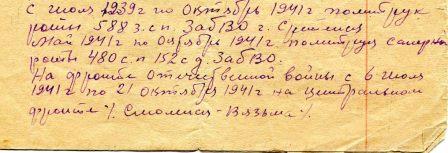 с июля 1939г по октябрь 1941г политрук
роты 588 з.с.п. ЗабВО г. Сретенск
Май 1941г по Октябрь 1941г политрук саперн
роты 480 с.п 152 с.д. ЗабВО.
На фронте отечественной войны с 6 июля
1941г по 21 октября 1941г на центральном
фронте /. Смоленск-Вязьма /.